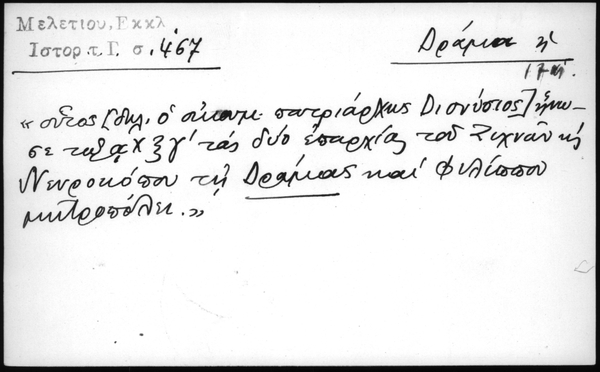 Μελετίου, Εκκλ
Ιστορ. τ. Γ. σ. 467
Δράμα ἡ
«οὗτος [δηλ. ὁ οἰκουμ. πατριάρχης Διονύσιος] ἥνω-
σε τῷ αχξγ' τὰς δύο ἐπαρχίας τοῦ Ζιχνῶν κὴ
Νευροκόπου τῇ Δράμας καί Φιλίππου
μητροπόλει.»